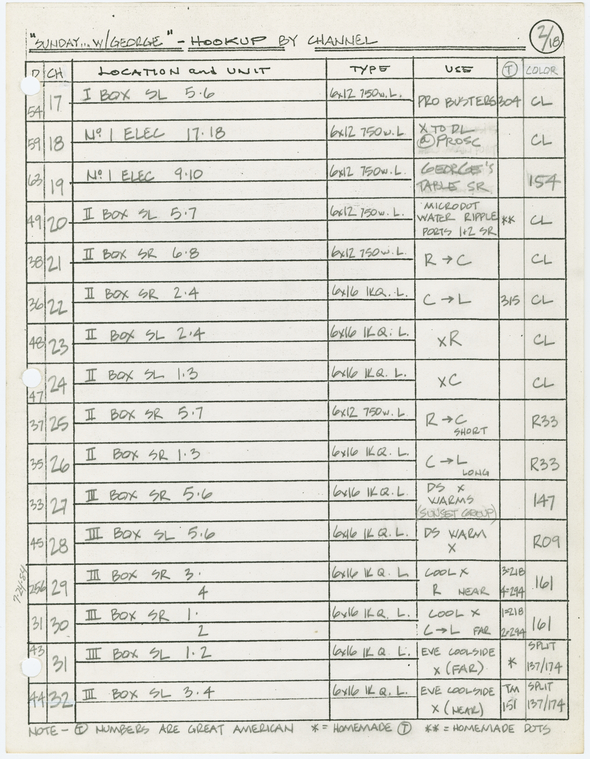 "SUNDAY... W/GEORGE" - HOOKUP BY CHANNEL 2/18
D CH LOCATION and UNIT TYPE USE Ⓣ COLOR
54 17 I BOX SL 5·6 6x12 750w.L. PRO BUSTERS 304 CL
59 18 Nº 1 ELEC 17·18 6x12 750w.L X TO DL @ PROSC CL
63 19 Nº 1 ELEC 9·10 6x12 750w.L. GEORGE'S TABLE SR 154
49 20 II BOX SL 5·7 6x12 750w.L. MICRODOT WATER RIPPLE PORTS 1+2 SR ** CL
38 21 II BOX SR 6·8 6x12 750w.L. R → C CL
36 22 II BOX SR 2·4 6x16 1KQ.L. C → L 315 CL
48 23 II BOX SL 2·4 6x16 1KQ.L. XR CL
47 24 II BOX SL 1·3 6x16 1KQ.L. XC CL
37 25 II BOX SR 5·7 6x12 750w.L R → C SHORT R33
35 26 II BOX SR 1·3 6x16 1KQ.L. C → L LONG R33
33 27 III BOX SR 5·6 6x16 1KQ.L DS X WARMS (SUNSET GROUP) 147
45 28 III BOX SL 5·6 6x16 1KQ.L. DS WARM X R09
29 III BOX SR 3· 4 6x16 1KQ.L. COOL X R NEAR 3=218 4=294 161
31 30 III BOX SR 1· 2 6x16 1KQ.L. COOL X C → L FAR 1=218 2=294 161
43 31 III BOX SL 1·2 6x16 1KQ.L. EVE COOLSIDE X (FAR) * SPLIT 137/174
44 32 III BOX SL 3·4 6x16 1KQ.L. EVE COOLSIDE X (NEAR) TM 151 SPLIT 137/174
7-24-84
NOTE - Ⓣ NUMBERS ARE GREAT AMERICAN * = HOMEMADE Ⓣ ** = HOMEMADE DOTS